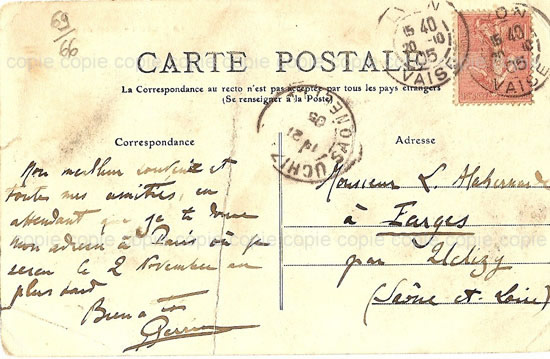 69
66
CARTE POSTALE
La Correspondance au recto n'est pas acceptée par tous les pays étrangers
(Se renseigner à la Poste)
LYON
15 40
20 5
05
VAISE
LYON
15 40
20 5
05
VAISE
UCHIZY
SAONE
21
05
Correspondance
Mon meilleur souvenir et
toutes mes amitiés, en
attendant que je te donne
mon adresse à Paris où je
serai le 2 Novembre au
plus tard
Bien à toi
Perrin
Adresse
Monsieur L.
à Farges
par Uchizy
(Saône et Loire)
copie copie copie copie copie copie copie copie